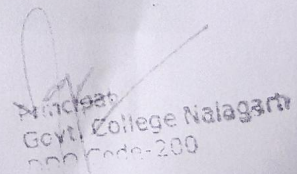 Principal
Govt. College Nalagarh
DDO Code-200